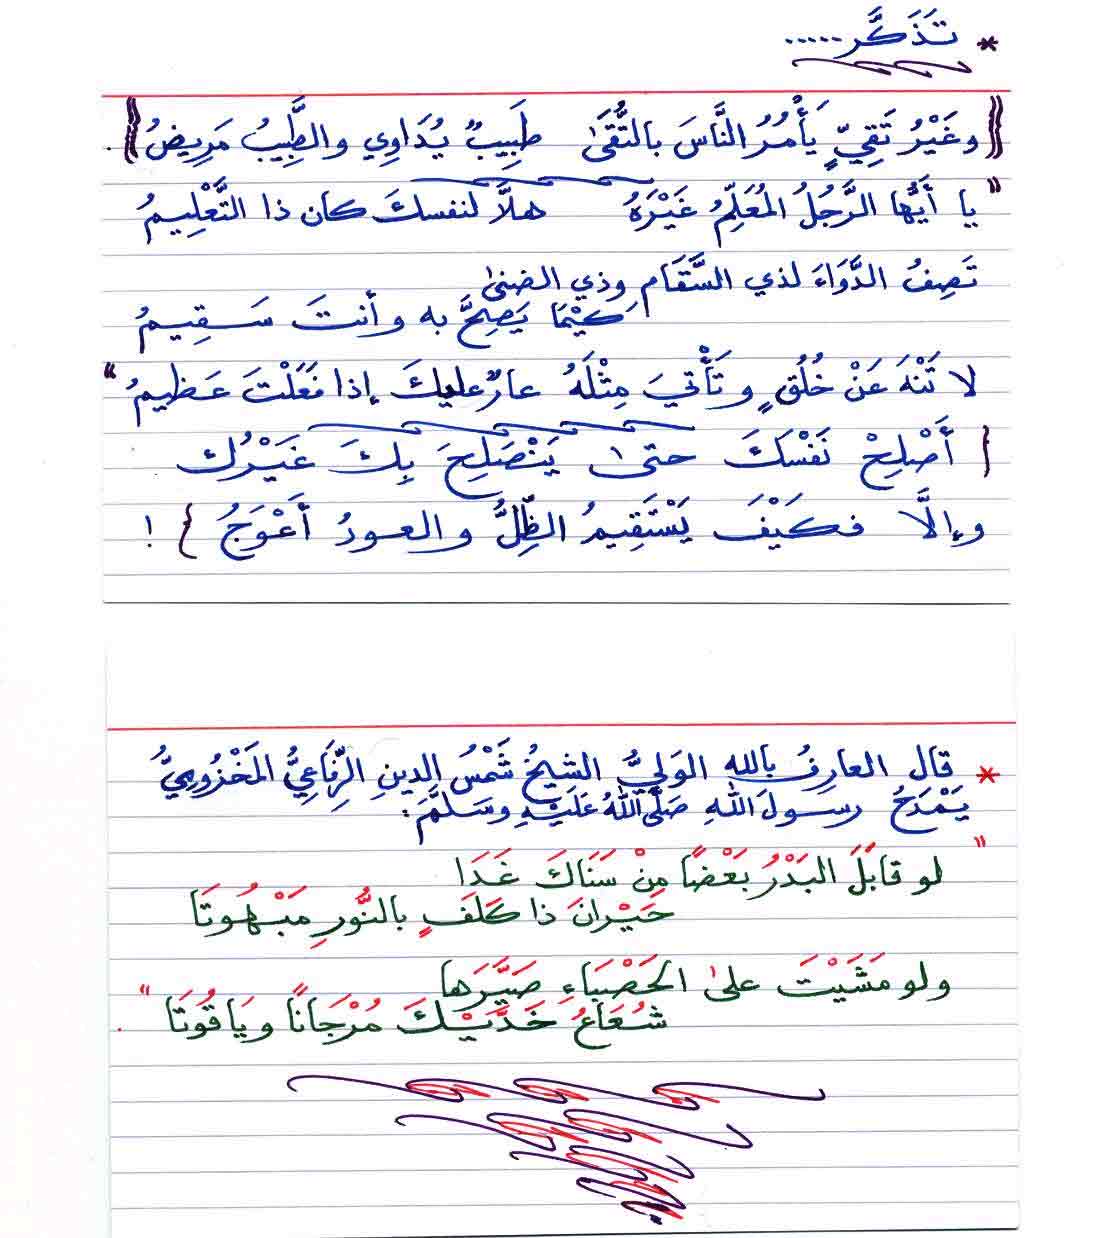 * تَذَكَّر.....
{{وغَيْرُ تَقِيٍّ يَأْمُرُ النَّاسَ بالتُّقَىٰ طَبِيبٌ يُدَاوِي والطَّبِيبُ مَرِيضُ}}.
" يا أَيُّها الرَّجُلُ المُعَلِّمُ غَيْرَهُ هلَّا لنفسكَ كان ذا التَّعْلِيمُ
تَصِفُ الدَّوَاءَ لذي السَّقَامِ وذي الضنىٰ
كَيْمَا يَصِحَّ به وأنتَ سَقِيمُ
لا تَنْهَ عَنْ خُلُقٍ وتَأْتِيَ مِثْلَهُ عارٌ عليكَ إذا فَعَلْتَ عَظِيمُ "
{ أَصْلِحْ نَفْسَكَ حتىٰ يَنْصَلِحَ بِكَ غَيْرُك
وإلَّا فكَيْفَ يَسْتَقِيمُ الظِّلُّ والعودُ أَعْوَجُ } !
* قال العارِفُ باللهِ الوَلِيُّ الشيخُ شَمْسُ الدِينِ الرِّفَاعِيُّ المَخْزُومِيُّ
يَمْدَحُ رسولَ اللهِ صَلَّى اللهُ عَلَيْهِ وسَلَّمَ:
" لو قابَلَ البَدْرُ بَعْضًا مِنْ سَنَاكَ غَدَا
حَيْرانَ ذا كَلَفٍ بالنُّورِ مَبْهُوتَا
ولو مَشَيْتَ علىٰ الحَصْبَاءِ صَيَّرَها
شُعَاعُ خَدَّيْكَ مُرْجَانًا ويَاقُوتَا ".